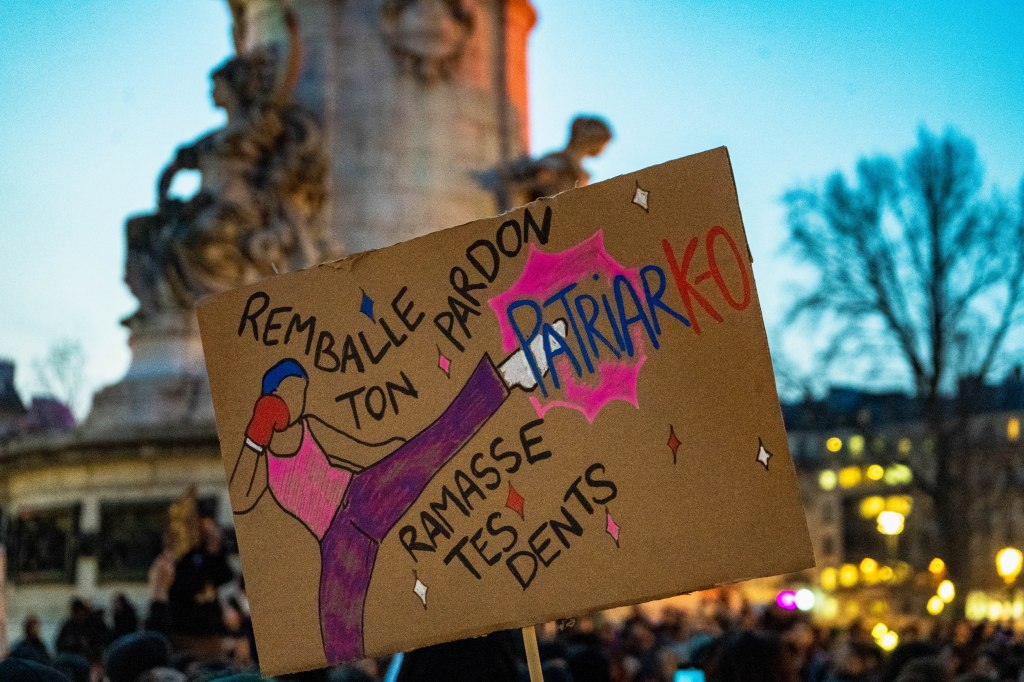 REMBALLE
TON PARDON
PATRIARK-O
RAMASSE
TES
DENTS